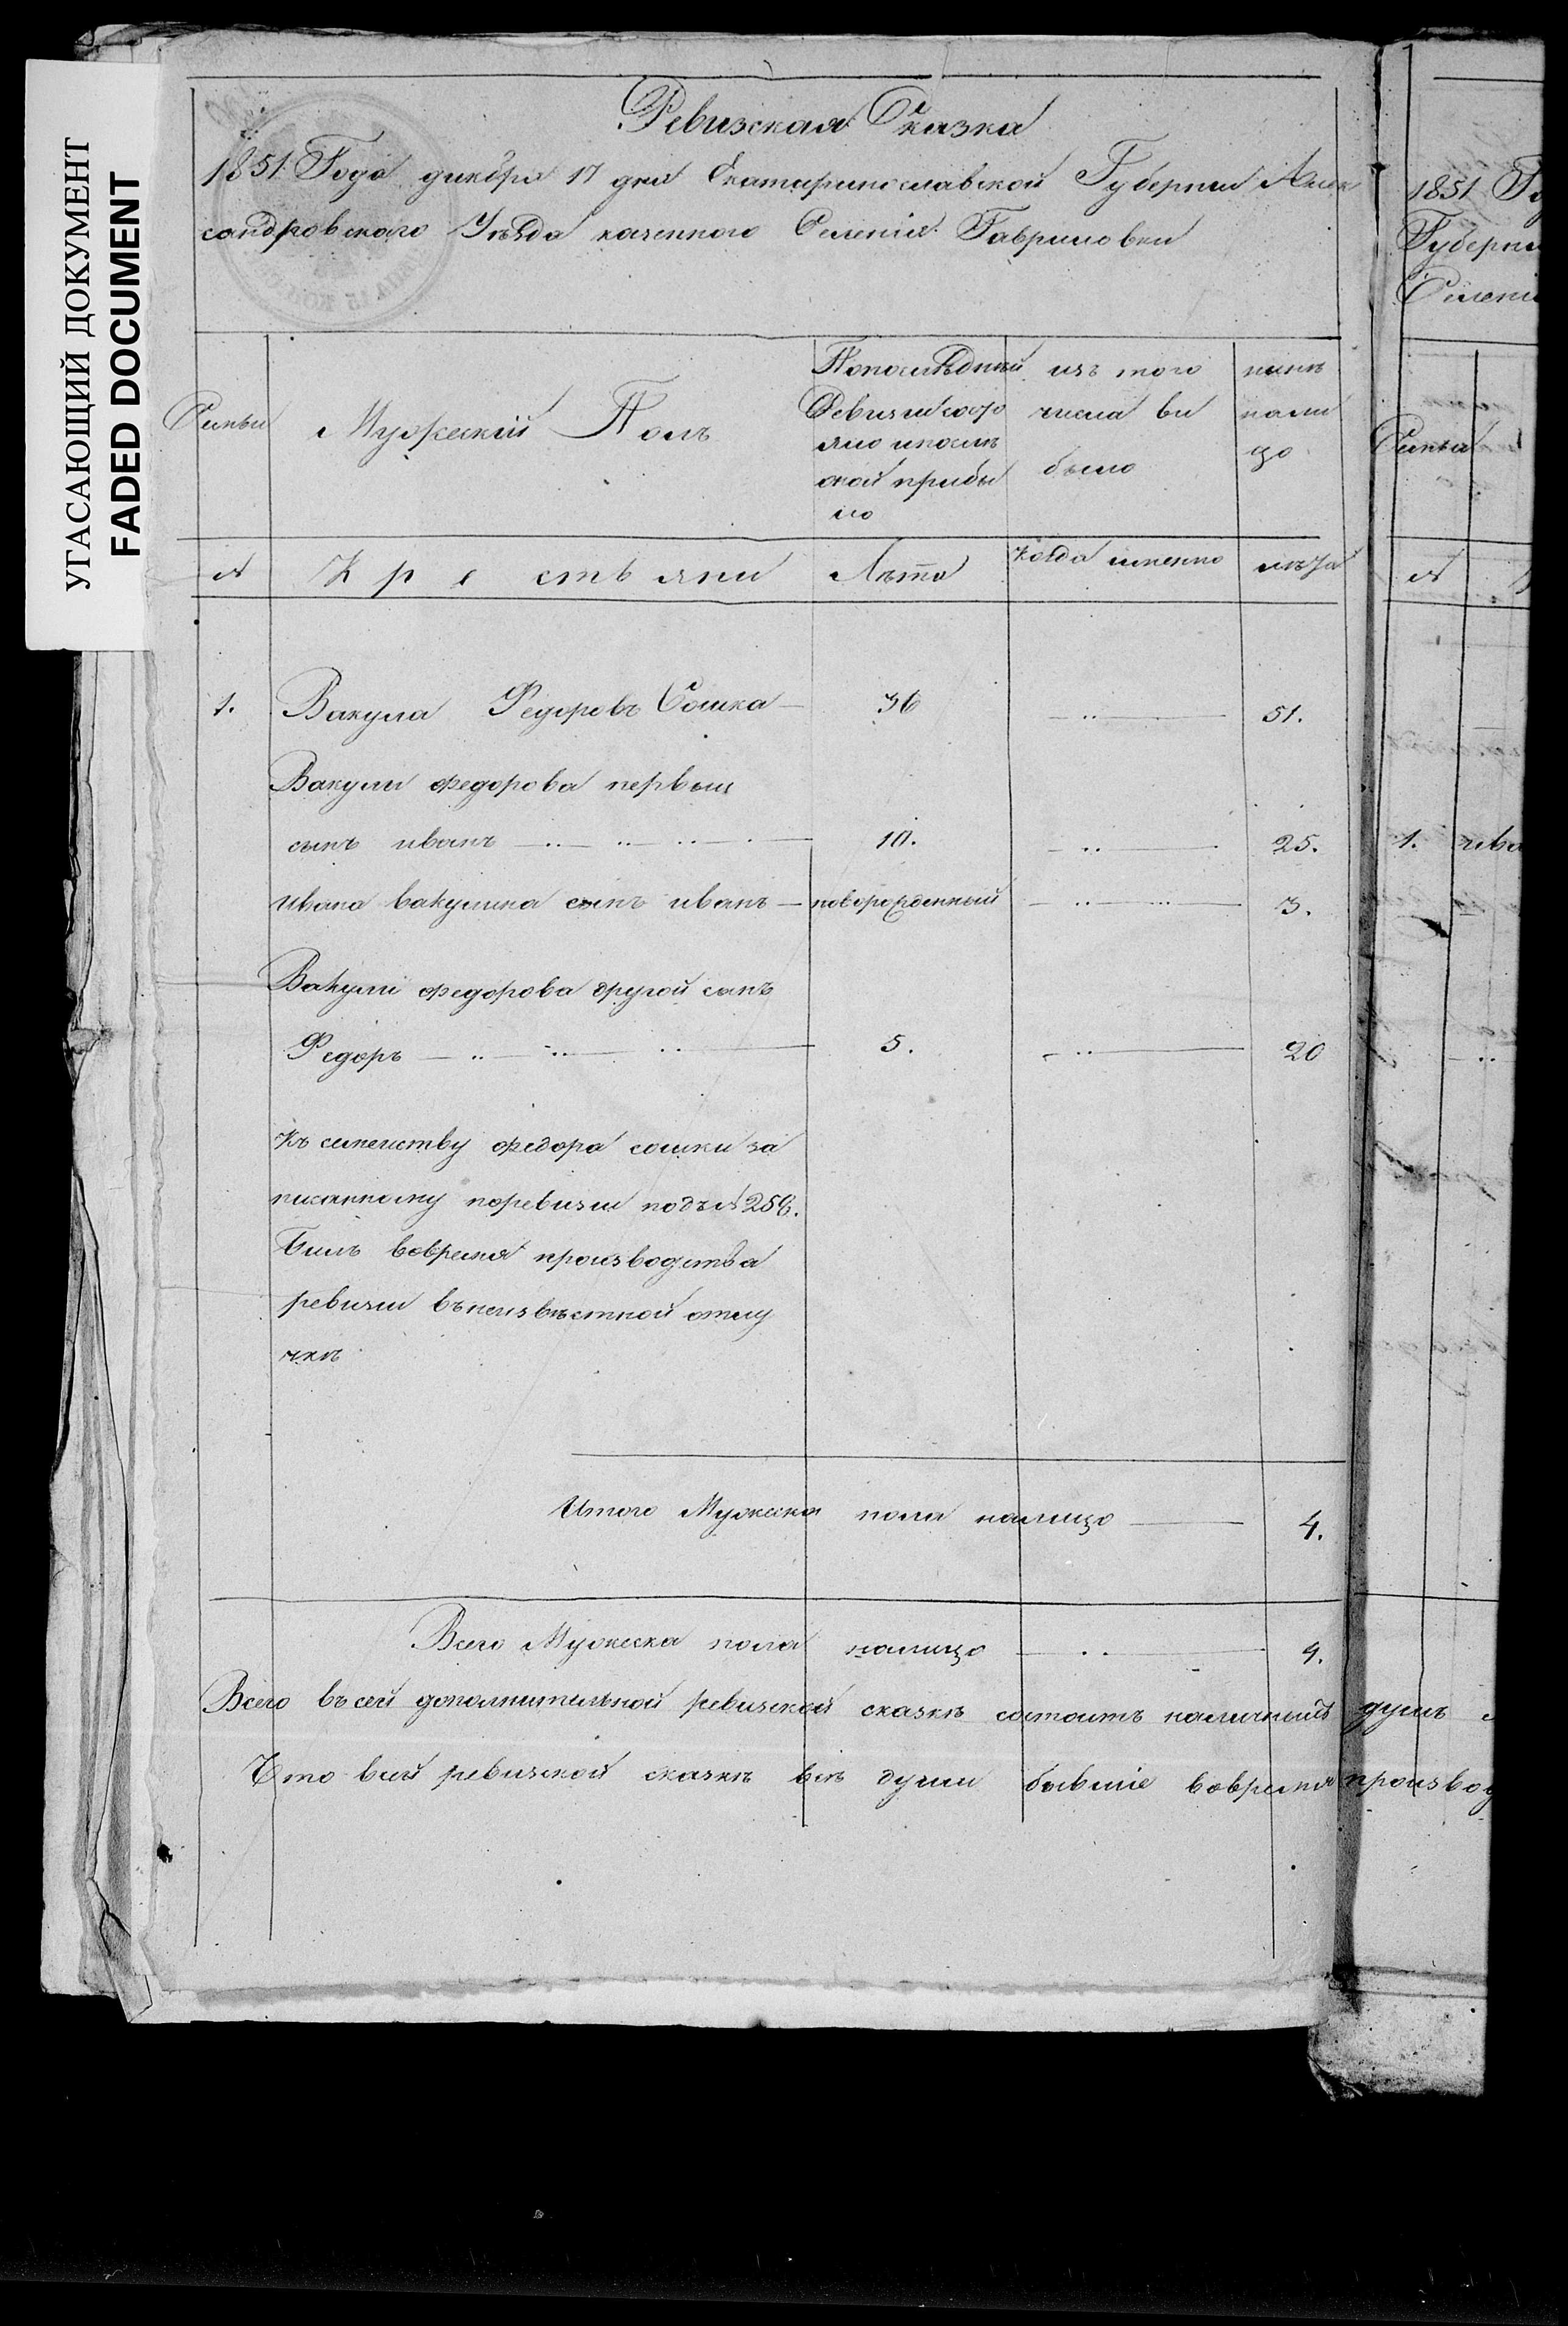 УГАСАЮЩИЙ ДОКУМЕНТ
FADED DOCUMENT
Ревизская Сказка
1851 Года декабря 17 дня Екатеринославской Губернии Алек
сандровского Уѣзда казенного Селенія Гавриловки
Семьи
Мужескій Полъ
Попослѣдней
Ревизіи состо
яло ипослѣ
оной прибы
ло
изъ того
числа вы
было
нынѣ
нали
цо
№
Крестьяни
Лѣта
когда именно
лѣта
1. Вакула Федоровъ Сошка 36 51.
Вакулы федорова первыи
сынъ иванъ 10. 25.
ивана вакулина сынъ иванъ новорожденный 3.
Вакули федорова другой сынъ
Федоръ 5. 20
Къ семейству федора сошки за
писанному поревизіи подъ № 256.
Былъ вовремя производства
ревизіи въ неизвѣстной отлу
чкѣ
Итого Мужеска пола налицо 4.
Всего Мужеска пола налицо 4.
Всего въ сей дополнительной ревизской сказкѣ состоитъ наличныхъ душъ
Что всей ревизской сказкѣ всѣ души бывшіе вовремя производ
1851 Го
Губерни
Селені
Семьи
№
1. ива